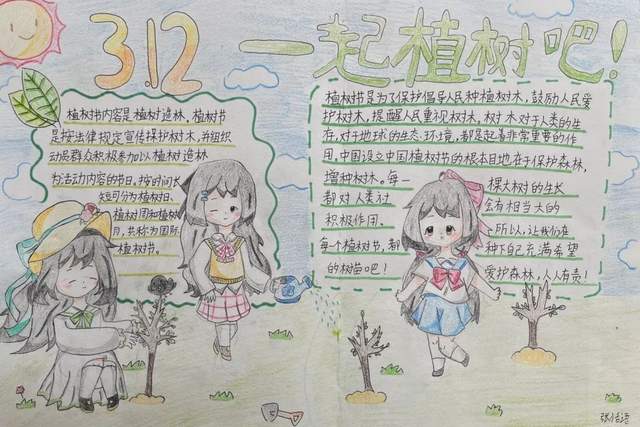 3.12 一起植树吧!
植树节内容是植树造林,植树节
是按法律规定宣传保护树木,并组织
动员群众积极参加以植树造林
为活动内容的节日。按时间长
短可分为植树日、
植树周和植树
月,共称为国际
植树节。
植树节是为了保护倡导人民种植树木,鼓励人民爱
护树木,提醒人民重视树木,树木对于人类的生
存,对于地球的生态环境,都是起着非常重要的作
用,中国设立中国植树节的根本目地在于保护森林,
增种树木。每一 棵大树的生长
都对人类社 会有相当大的
积极作用。 所以,让我们在
每个植树节,都 种下自己充满希望
的树苗吧! 爱护森林,人人有责!